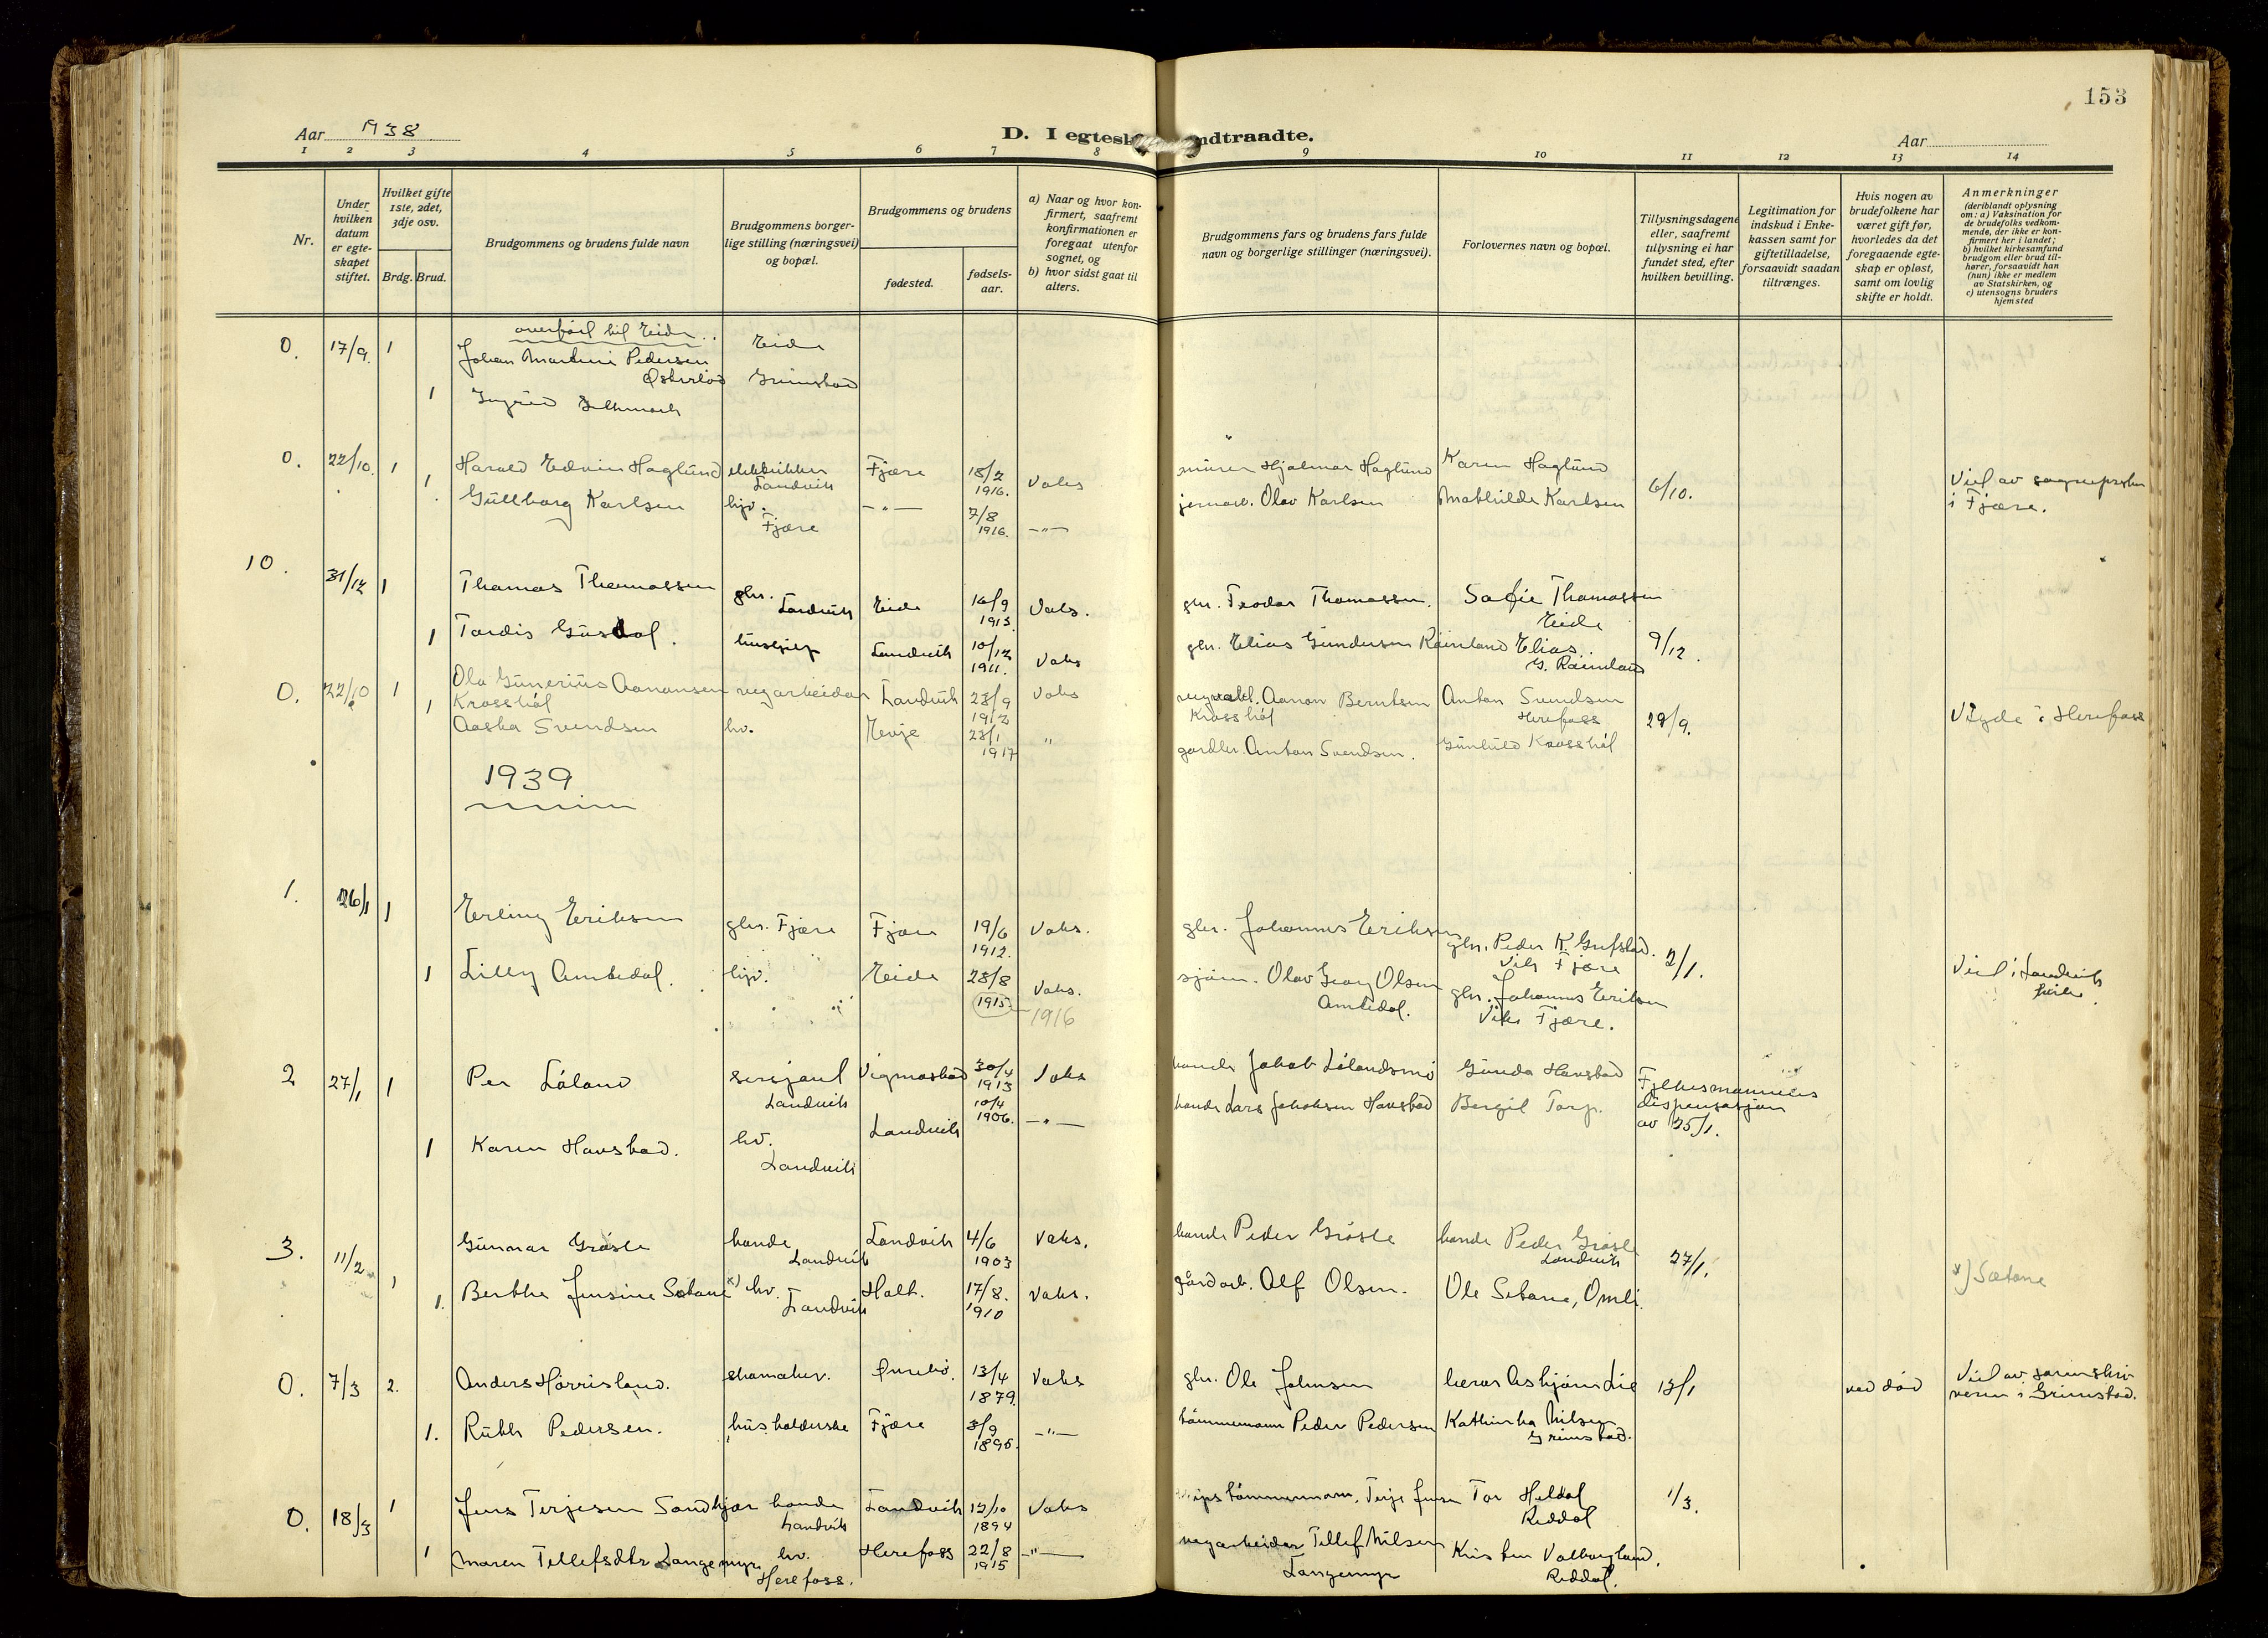 153
Aar 1938
D. I egtesk
ndtraadte.
Aar
1 2 3 4 5 6 7 8 9 10 11 12 13 14
Nr.
Under hvilken datum er egte-skapet stiftet.
Hvilket gifte 1ste, 2det, 3dje osv.
Brdg. Brud.
Brudgommens og brudens fulde navn
Brudgommens borger-
lige stilling (næringsvei)
og bopæl.
Brudgommens og brudens
fødested.
fødsels-
aar.
a) Naar og hvor kon-
firmert, saafremt
konfirmationen er
foregaat utenfor
sognet, og
b) hvor sidst gaat til
alters.
Brudgommens fars og brudens fars fulde
navn og borgerlige stillinger (næringsvei).
Forlovernes navn og bopæl.
Tillysningsdagene
eller, saafremt
tillysning ei har
fundet sted, efter
hvilken bevilling.
Legitimation for
indskud i Enke-
kassen samt for
giftetilladelse,
forsaavidt saadan
tiltrænges.
Hvis nogen av
brudefolkene har
været gift før,
hvorledes da det
foregaaende egte-
skap er opløst,
samt om lovlig
skifte er holdt.
Anmerkninger
(deriblandt oplysning
om: a) Vaksination for
de brudefolks vedkom-
mende, der ikke er kon-
firmert her i landet;
b) hvilket kirkesamfund
brudgom eller brud til-
hører, forsaavidt han
(hun) ikke er medlem
av Statskirken, og
c) utensogns bruders
hjemsted
overført til Eide
0. 17/9. 1 Johan Martini Pedersen Eide
Østerlød Grimstad
1 Ingrid
0. 22/10. 1 Harald Edvin Haglund elektriker Landvik Fjære 18/2 1916. Vaks murer Hjalmar Haglund Karen Haglund 6/10. Viel av sogneprsten i Fjære.
1 Gullborg Karlsen hjv. Fjære -"- 7/8 1916. -"- jernarb. Olav Karlsen Mathilde Karlsen
10. 31/12 1 Thomas Thomassen gbr. Landvik Eide 16/9 1913 Vaks. gbr. Teodor Thomassen. Sofie Thomassen Eide 9/12.
1 Tordis Gusdal. hushjelp Landvik 10/12 1911. Vaks gbr. Elias Gundersen Rämland Elias G. Rämland
0. 22/10 1 Ola Gunerius Aanonsen Krosshól vegarbeider Landvik 23/9 1912 Vaks vegvokt. Aanon Berntsen Krosshól Anton Svendsen Herefoss 29/9. Vigde i Herefoss
1 Aasta Svendsen hv. Evje 23/1 1917 " gardbr. Anton Svendsen. Gunhild Krosshól
1939
1. 26/1 1 Erling Eriksen gbr. Fjære Fjære 19/6 1912. Vaks. gbr. Johannes Eriksen gbr. Peder K. Grefstad. Vik Fjære 2/1. Viel i Landvik kirke.
1 Lilly Amtedal. hjv. Eide 23/8 1915 Vaks. 1916 sjøm. Olav Georg Olsen Amtedal. gbr. Johannes Eriksen Vik Fjære.
2 27/1 1 Per Låland sersjant Landvik Vigmostad 30/4 1913 Vaks bonde Jakob Lålandsmo Gunda Havstad Fylkesmannens dispensasjon av 25/1.
1 Karen Havstad. hv. Landvik Landvik 10/4 1906. -"- bonde Lars Jakobsen Havstad Bergit Torp.
3. 11/2 1 Gunnar Grøsle bonde Landvik Landvik 4/6 1903 Vaks. bonde Peder Grøsle bonde Peder Grøsle Landvik 27/1. x) Sætane
1. Berthe Jensine Setane x) hv. Landvik Holt. 17/8. 1910 Vaks. gårdarb. Alf Olsen. Ole Setane, Omli.
0. 7/3 2. Anders Hørrisland. skomaker. 13/4 1879. Vaks gbr. Ole Johnsen lærer Asbjørn Lie 13/1 ved død Viel av sorenskriveren i Grimstad.
1. Ruth Pedersen. husholderske Fjære 3/9 1895. -"- tømmermann Peder Pedersen Kathinka Nilsen Grimstad.
0. 18/3 1 Jens Terjesen Sandkjær bonde Landvik Landvik 12/10 1894 Vaks skipstømmermann. Terje Jensen Tor Heldal Reddal 1/3.
1 Maren Tellefsdtr Langemyr, hv. Herefoss. Herefoss 22/8 1915 -"- vegarbeider Tellef Nilsen Langemyr Kristen Valborgland, Reddal.